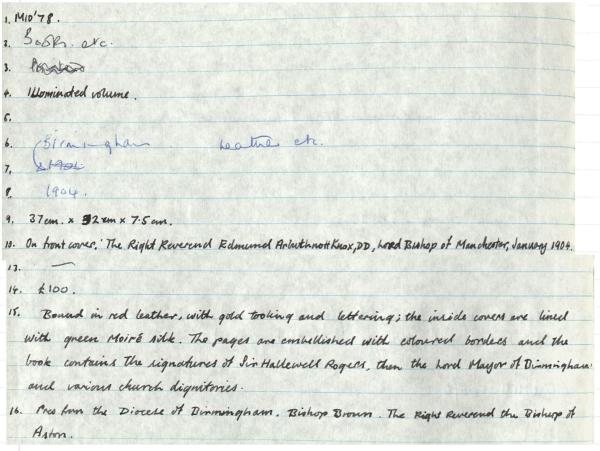 1. MID'78.
2. Books. etc.
3.
4. Illuminated volume.
5.
6. Birmingham Leather etc.
7.
8. 1904.
9. 37cm. x 32cm x 7.5cm.
10. On front cover, 'The Right Reverend Edmund Arbuthnott Knox, DD, Lord Bishop of Manchester, January 1904.
13. —
14. £100.
15. Bound in red leather, with gold tooling and lettering; the inside covers are lined
with green Moiré silk. The pages are embellished with coloured borders and the
book contains the signatures of Sir Hallewell Rogers, then the Lord Mayor of Birmingham
and various church dignitories.
16. Pres from the Diocese of Birmingham. Bishop Brown. The Right Reverend the Bishop of
Aston.